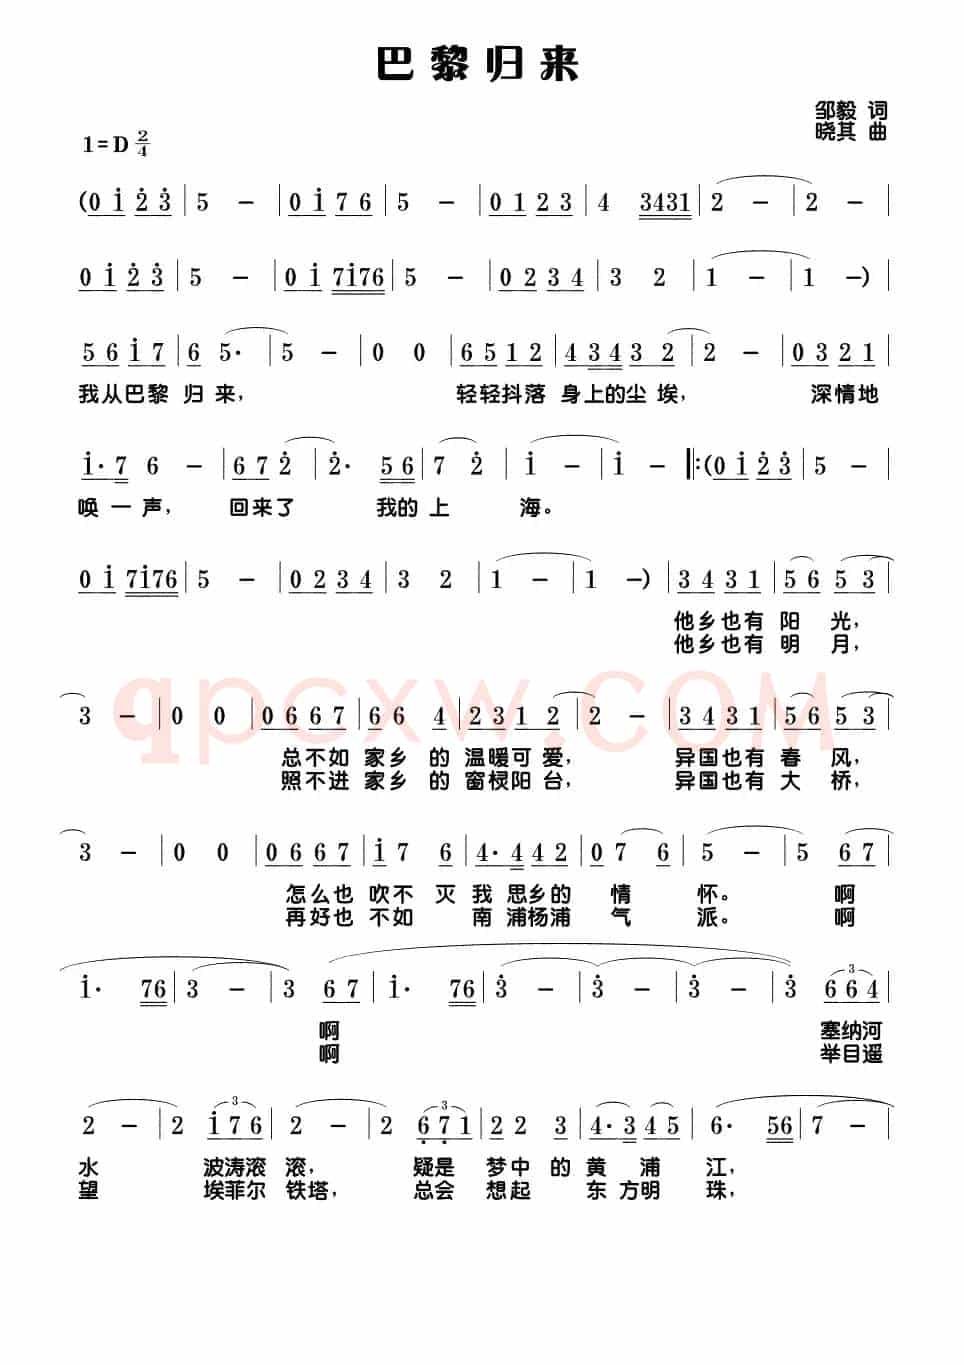 巴黎归来
邹毅 词
晓其 曲
1=D 2/4
(0 1 2 3 | 5 - | 0 1 7 6 | 5 - | 0 1 2 3 | 4 3431 | 2 - | 2 - |
0 1 2 3 | 5 - | 0 1 7176 | 5 - | 0 2 3 4 | 3 2 | 1 - | 1 -) |
5 6 1 7 | 6 5· | 5 - | 0 0 | 6 5 1 2 | 4 3 4 3 2 | 2 - | 0 3 2 1 |
我从巴黎 归 来, 轻轻抖落 身上的尘 埃, 深情地
1· 7 6 - | 6 7 2 | 2· 5 6 | 7 2 | 1 - | 1 - |: (0 1 2 3 | 5 - |
唤 一 声, 回来了 我的 上 海。
0 1 7176 | 5 - | 0 2 3 4 | 3 2 | 1 - | 1 -) | 3 4 3 1 | 5 6 5 3 |
他乡也有 阳 光,
他乡也有 明 月,
3 - | 0 0 | 0 6 6 7 | 6 6 4 | 2 3 1 2 | 2 - | 3 4 3 1 | 5 6 5 3 |
qpcxw.COM
总不如 家乡 的 温暖可 爱, 异国也有 春 风,
照不进 家乡 的 窗棂阳 台, 异国也有 大 桥,
3 - | 0 0 | 0 6 6 7 | 1 7 6 | 4· 4 4 2 | 0 7 6 | 5 - | 5 6 7 |
怎么也 吹不 灭 我 思乡的 情 怀。 啊
再好也 不如 南 浦杨浦 气 派。 啊
1· 76 | 3 - | 3 6 7 | 1· 76 | 3 - | 3 - | 3 - | 3 6 6 4 |
啊 塞纳河
啊 举目遥
2 - | 2 1 7 6 | 2 - | 2 6 7 1 | 2 2 3 | 4· 3 4 5 | 6· 56 | 7 - |
水 波涛滚 滚, 疑是 梦中 的 黄 浦 江,
望 埃菲尔 铁塔, 总会 想起 东 方明 珠,